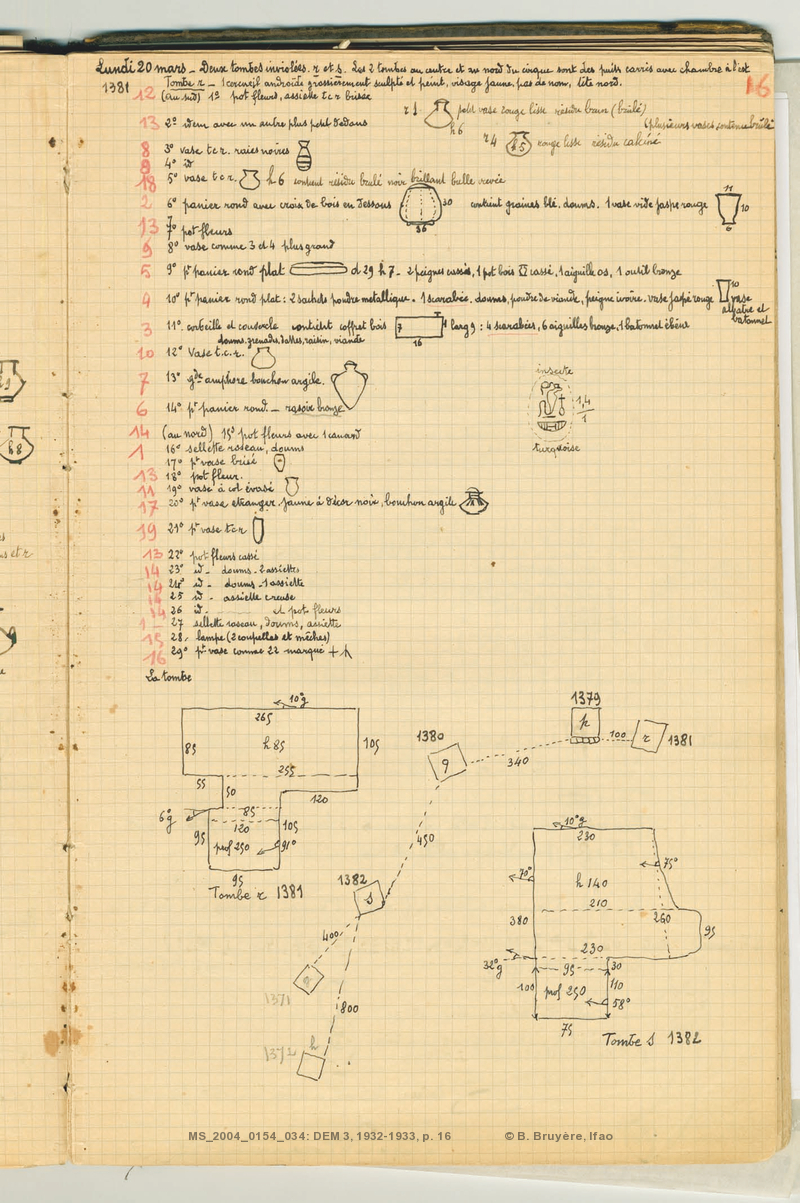 Lundi 20 mars - Deux tombes inviolées. r et s. Les 2 tombes au centre et au nord du cirque sont des puits carrés avec chambre à l'est
16
1381 Tombe r - 1 cercueil androïde grossièrement sculpté et peint, visage jaune, pas de nom, tête nord.
12 (au sud) 1º pot fleurs, assiette t.c.r brisée
r1 petit vase rouge lisse résidu brun (brûlé)
h6
13 2º idem avec un autre plus petit dedans
(plusieurs vases contenu brûlé
r4 h5 rouge lisse résidu calciné
8 3º vase t.c.r. raies noires
8 4º id
18 5º vase t.c.r. h6 contient résidu brulé noir brillant belle cuvée
2 6º panier rond avec croix de bois en dessous 30 36 contient graines blé. doums. 1 vase vide jaspe rouge 11 10 6
13 7º pot fleurs
9 8º vase comme 3 et 4 plus grand
5 9º pt panier rond plat d 29 h 7 - 2 peignes cassés, 1 pot bois cassé, 1 aiguille os, 1 outil bronze
4 10º pt panier rond plat : 2 sachets poudre metallique. 1 scarabée. doums, poudre de viande, peigne ivoire. vase jaspé rouge 10 vase
albatre et
batonnet
3 11º. corbeille et couvercle contient coffret bois 7 16 larg 9 : 4 scarabées, 6 aiguilles bronze, 1 batonnet ébène
doums, grenades, dattes, raisin, viande
10 12º Vase t.c.r.
7 13º gde amphore bouchon argile.
6 14º pt panier rond. - rasoir bronze
insecte
1,4
1
turquoise
14 (au nord) 15º pot fleurs avec 1 canard
1 16º sellette roseau, doums
17º pt vase brisé
13 18º pot fleur.
11 19º vase à col évasé
17 20º pt vase etranger. jaune à décor noir, bouchon argile
19 21º pt vase t.c.r
13 22º pot fleurs cassé
14 23º id - doums - 2 assiettes
14 24º id - doums - 1 assiette
14 25 id - assiette creuse
14 26 id. et pot fleurs
1 - 27 sellette roseau, doums, assiette
15 28. lampe (2 coupelles et mèches)
16 29º pt vase comme 22 marque
La tombe
10º g
265
85
h 85
105
255
55
50
120
6º g
85
120
95
105
prof 250
91º
95
Tombe r 1381
1380
q
340
1379
p
100
r
1381
450
1382
s
400
1371
800
1372 h
10º g
230
75º
70º
h 140
210
380
260
95
230
32º g
95
30
100
prof 250
110
58º
75
Tombe s 1382
h8
MS_2004_0154_034: DEM 3, 1932-1933, p. 16 © B. Bruyère, Ifao